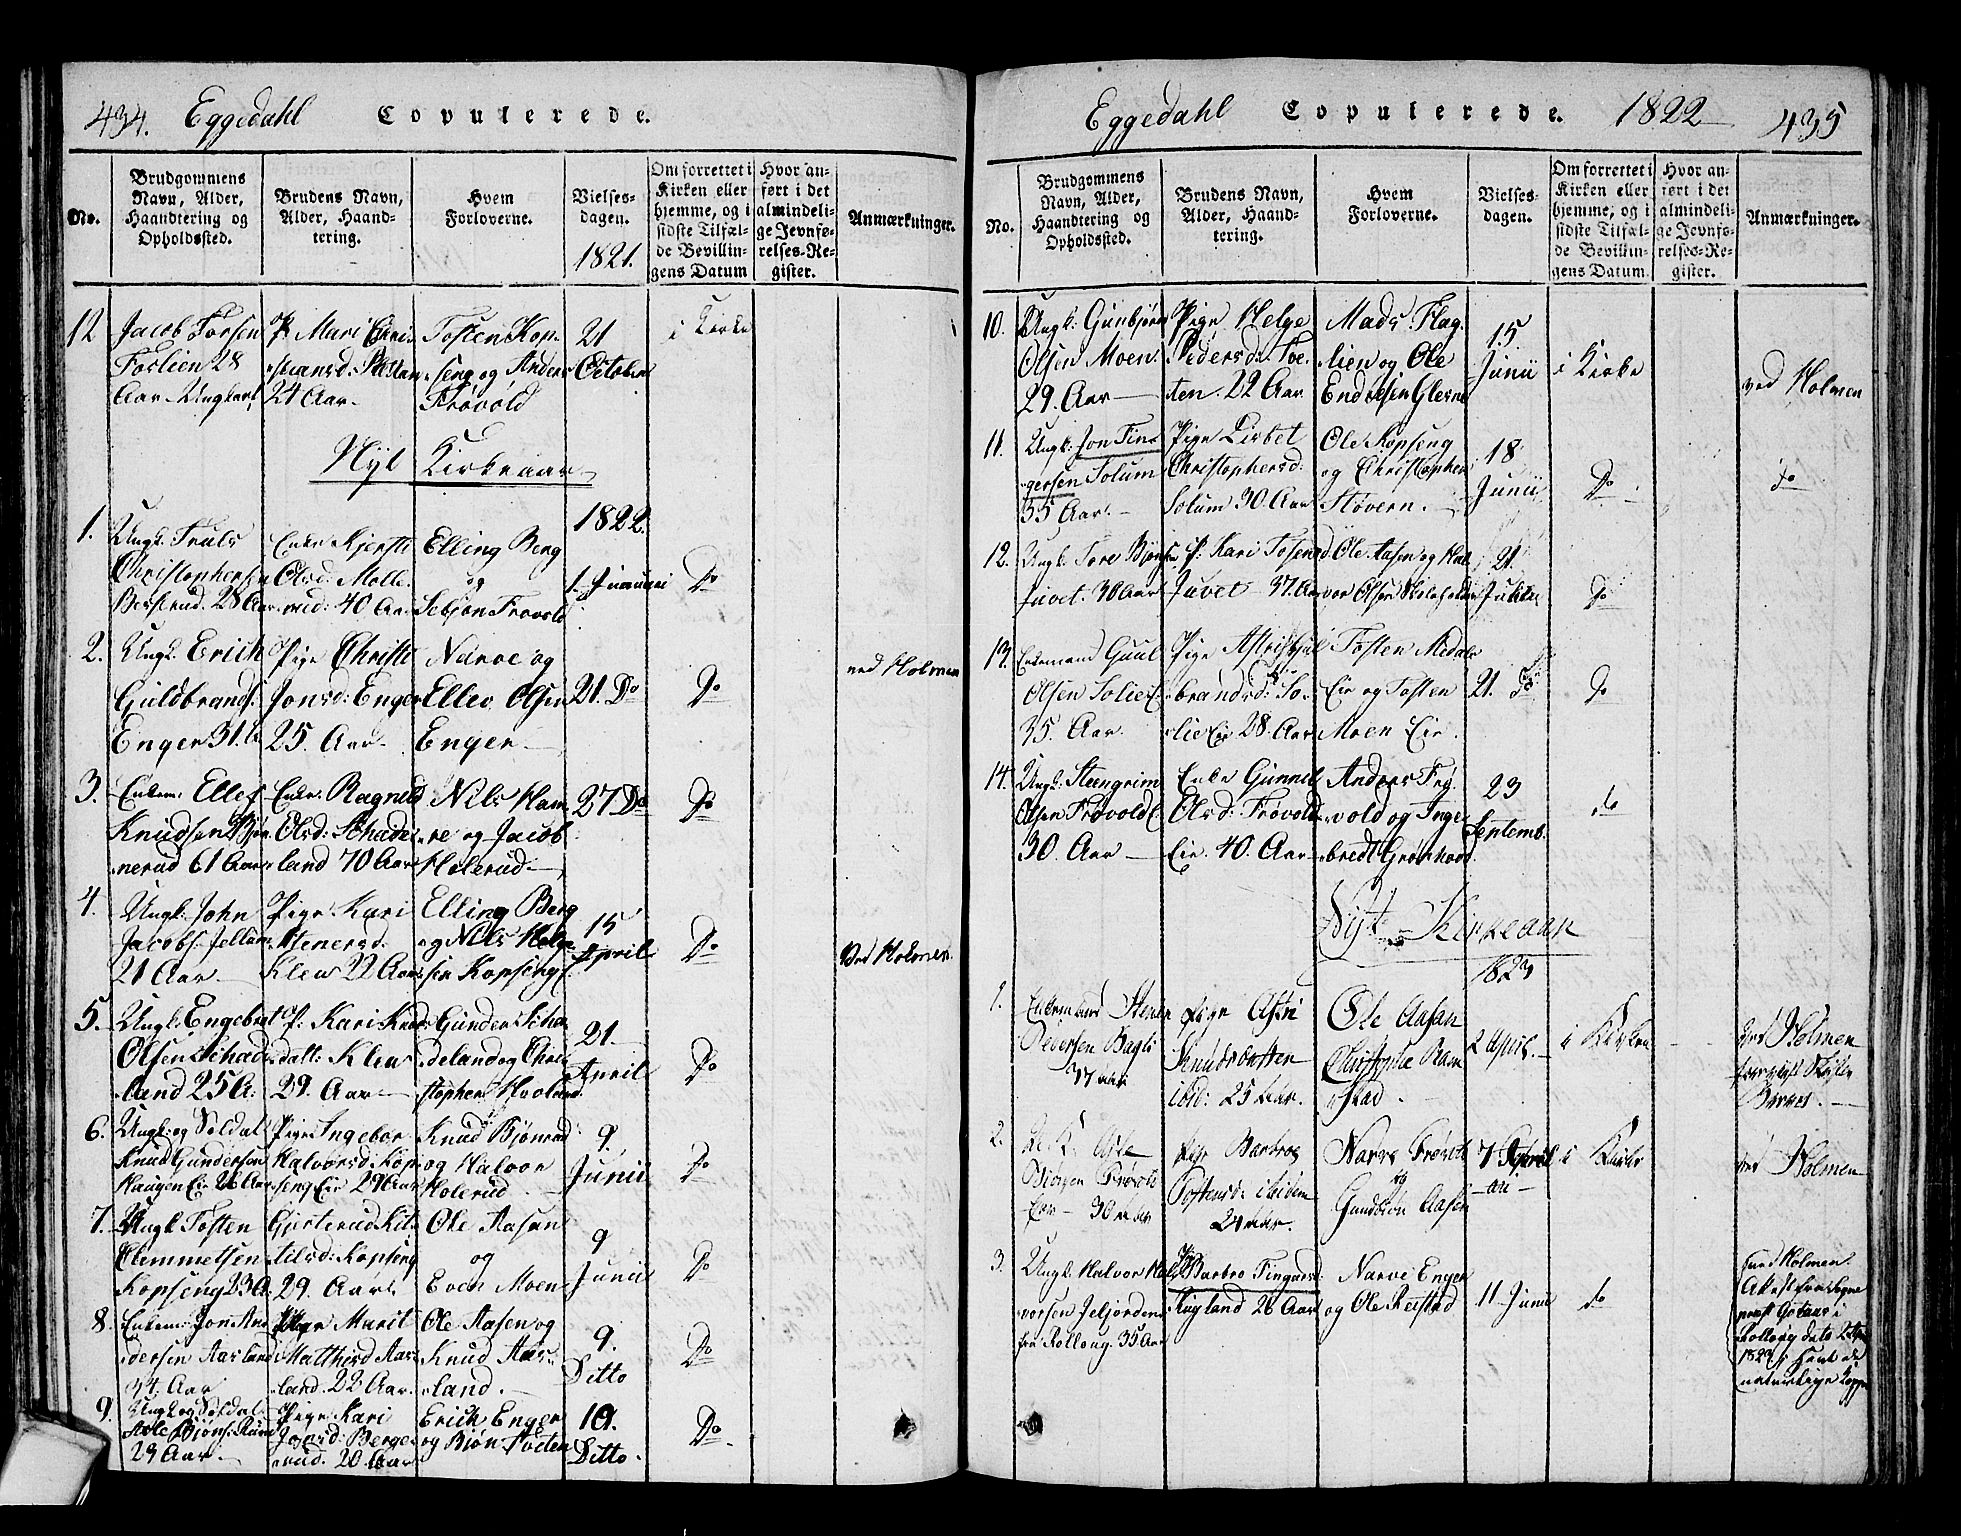 434. Eggedahl Copulerede.
No.
Brudgommens Navn, Alder, Haandtering og Opholdssted.
Brudens Navn, Alder, Haandtering.
Hvem Forloverne.
Vielsesdagen. 1821.
Om forrettet i Kirken eller hjemme, og i sidste Tilfælde Bevillingens Datum
Hvor anført i det almindelige Jevnførelses-Register.
Anmærkninger.
12 Jacob Torsen
Foslien 28
Aar Ungkarl
P. Mari Chri-
stiansd:
24 Aar
Tosten Kop-
seng og Anders
Frøvold
21
October
i Kirke
Nyt Kirkeaar
1822.
1. Ungk. Truls
Christophersen
28 Aar
Enke Kjersti
Olsd: Molle-
rud: 40 Aar
Elling Berg
og
Sebjøn Frøvold
1. Januari
Do
2. Ungk. Erich
Guldbrands:
Enger 31. A
Pige Christi
Jonsd: Enger
25. Aar.
Narve og
Ellev Olsen
Enger
21. Do
Do
ved Holmen
3. Enkem: Ellef
Knudsen Bjør-
nerud 61 Aar
Enke: Ragnild
Olsd: Schade-
land 70 Aar
Nils Ham-
re og Jacob
Holerud
27 Do
Do
4. Ungk: John
Jacobs:
21 Aar
Pige Kari
Stenersd.
Kleu 22 Aar
Elling Berg
og Nils Helge-
sen Kopseng
15
April
Do
Ved Holmen.
5. Ungk: Engebret
Olsen Schade-
land 25 A.
P. Kari Knuds-
datt: Kleu
29. Aar
Gunder Scha-
deland og Chri-
stopher Hovland
21.
April
Do
6. Ungk: og Soldat
Knud Gundersen
Haugen Eie 26 Aar
Pige Ingebor
Halvorsd: Kop-
seng Eie 29 Aar
Knud Bjønrud
og Halvor
Holerud
9.
Junii
Do
7. Ungk: Tosten
Clemmetsen
Kopseng 23 A.
Kit-
tilsd: Kopseng
29. Aar.
Ole Aasen
og
Even Moen
9
Junii
Do
8. Enkem: Jon An-
dersen Aasland
34. Aar
Pige Marit
Matthisd Aas-
land. 22 Aar.
Ole Aasen og
Knud Aas-
land.
9.
Ditto
Do
9. Ungk og Soldat
Bjøns:
29 Aar
Pige Kari
Jonsd: Berge-
rud. 20 Aar
Erich Enger
og Bjøn
10.
Ditto.
Do
Eggedahl Copulerede. 1822 435
No.
Brudgommens Navn, Alder, Haandtering og Opholdssted.
Brudens Navn, Alder, Haandtering.
Hvem Forloverne.
Vielsesdagen.
Om forrettet i Kirken eller hjemme, og i sidste Tilfælde Bevillingens Datum.
Hvor anført i det almindelige Jevnførelses-Register.
Anmærkninger.
10. Ungk: Gunbjørn
Olsen Moen.
29. Aar
Pige Helge
Pedersd:
22 Aar
Mads Flag-
lien og Ole
Endresen Glesne
15
Junii
i Kirke
ved Holmen
11. Ungk: Jon Fin-
gersen Solum
35 Aar.
Pige Lisbet
Christophersd:
Solum 30. Aar
Ole Kopseng
og Christopher
Støvern.
18
Junii
Do
do
12. Ungk: Tore Bjøns
Juvet. 30 Aar
P: Kari Tosensd
Juvet 37. Aar
Ole Aasen og Hal-
vor Olsen
21.
Do
13. Enkemand Guul
Olsen Solie E.
35. Aar
Pige
brandsd: So-
lie Eie 28. Aar
Tosten Medals
Eie og Tosten
Moen Eie.
21. Do
Do
14. Ungk. Steengrim
Olsen Frøvold E.
30. Aar
Enke Gunnil
Olsd: Frøvold
Eie. 40. Aar
Anders Frø-
vold og Inge-
bredt Grønhovd
23
Septemb.
do
Nyt Kirkeaar
1823
1. Enkemand Stener
Pedersen Bagli
37 aar
Pige
Knudsdatter
ibid: 25 Aar.
Ole Aasen
Christopher Ram-
stad
2 April.
i Kirken
Ved Holmen
2.
30 Aar
Pige Barbros
Tostensd: ibidem
24 Aar.
Narve Frøvold
og
Gunbiøn Aasen
7
i Kirke
ved Holmen
3. Ungk. Halvor Hal-
vorsen
fra Rolloug. 35 Aar
Pige Barbro Fingarsd.
Rugland 26 Aar
Narve Enger
og Ole Reistad
11 Junii
do
ved Holmen.
Attest fra Sogne-
præst i
Rolloug
1823
naturlige